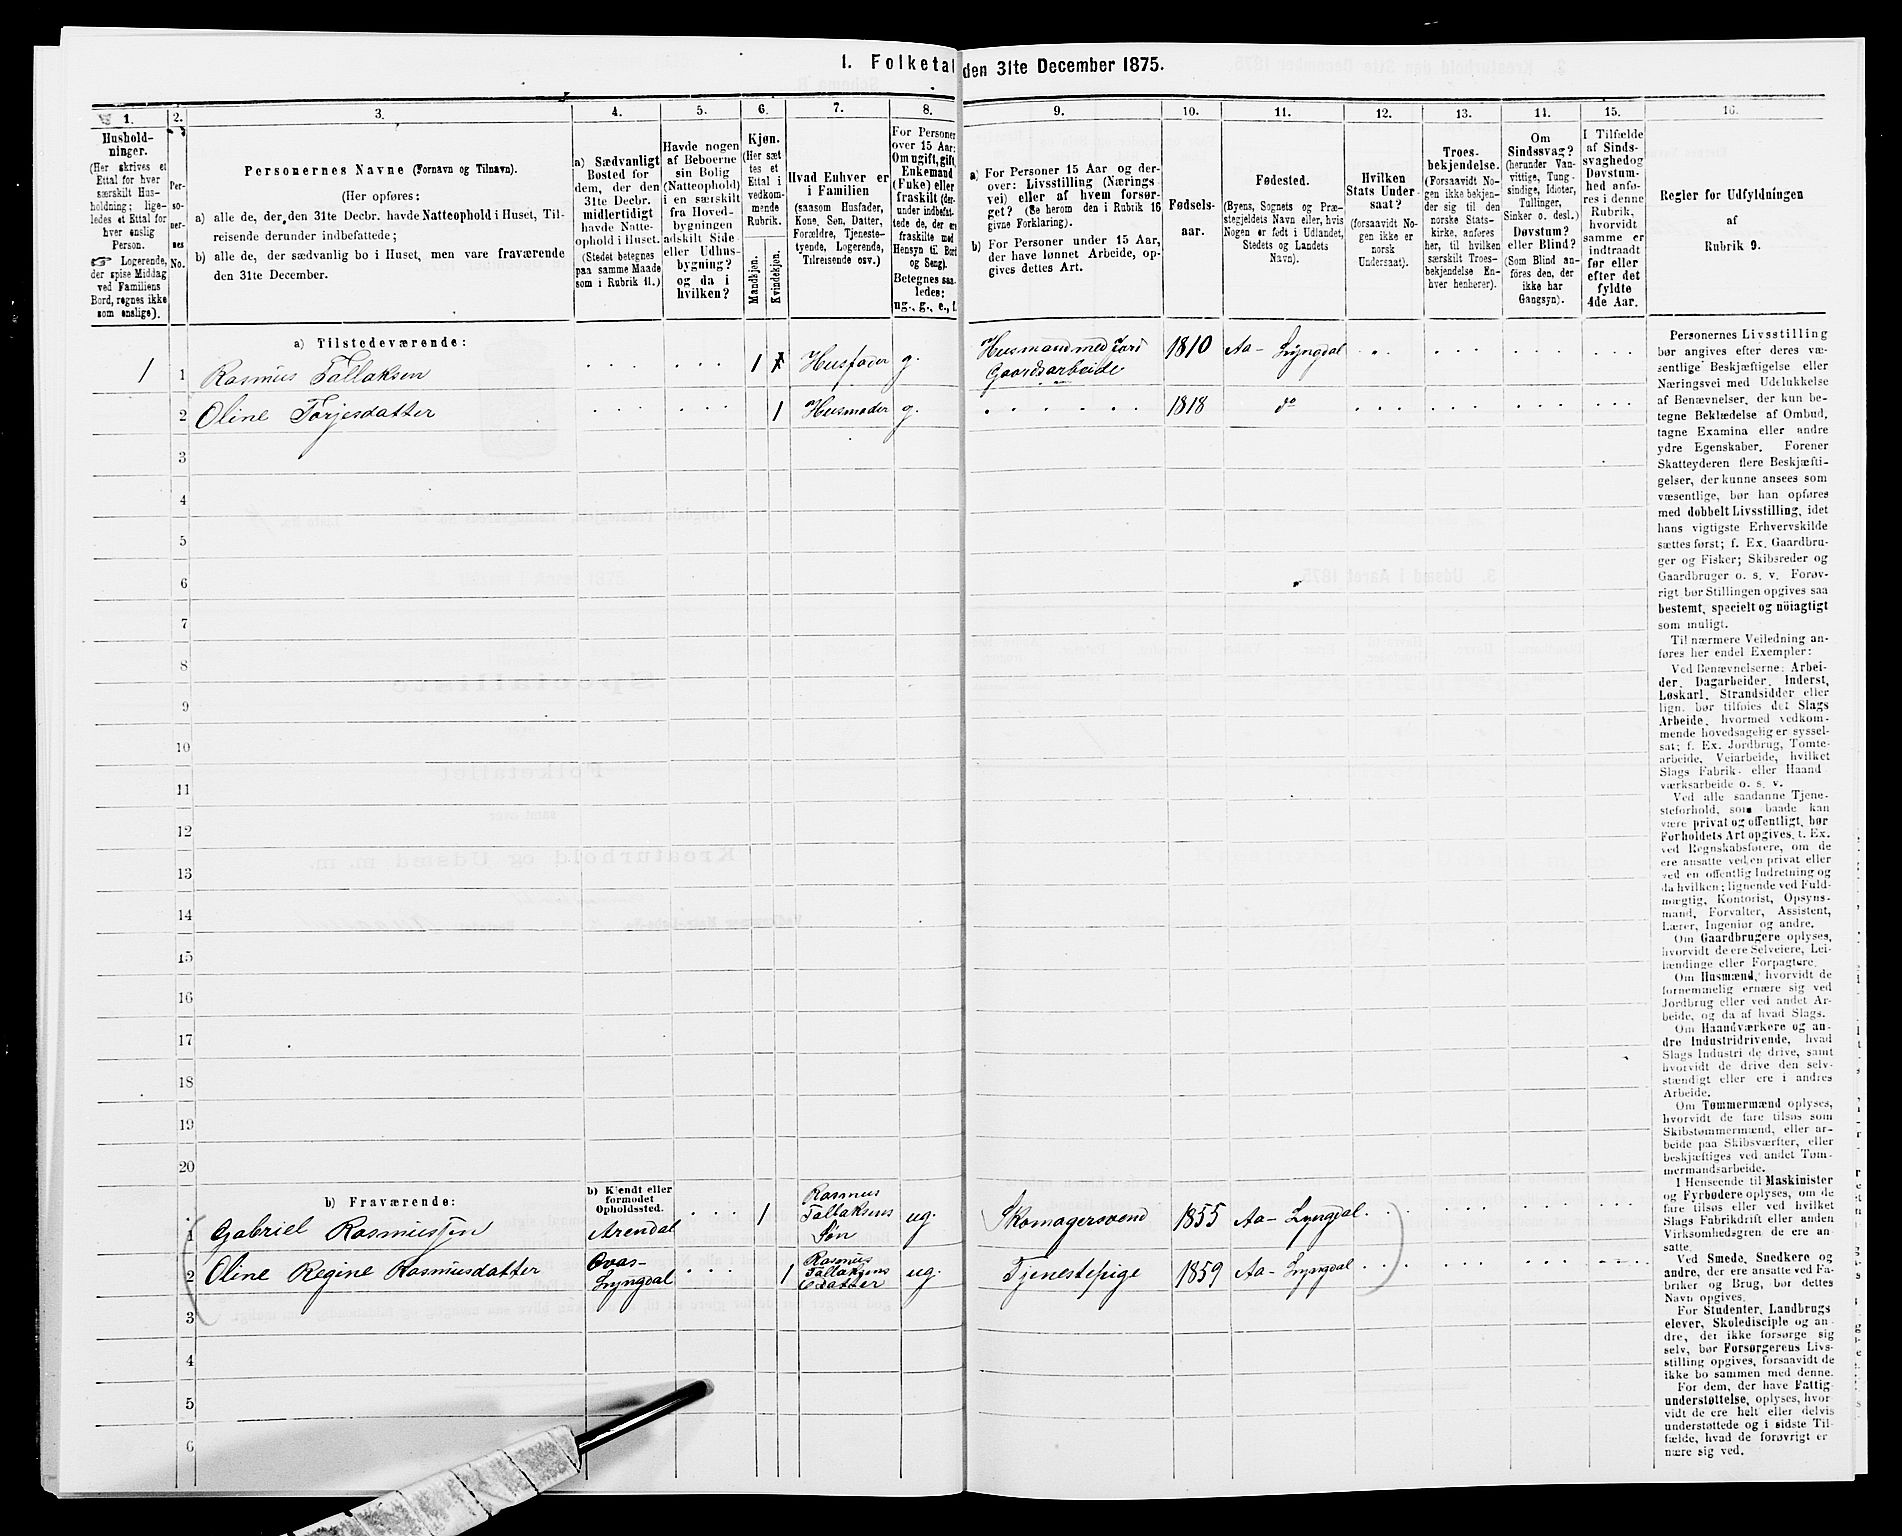 1. Folketal den 31te December 1875.
1.
2.
3.
4.
5.
6.
7.
8.
9.
10.
11.
12.
13.
14.
15.
16.
Hushold-
ninger.
(Her skrives et
Ettal for hver
særskilt Hus-
holdning; lige-
ledes et Ettal for
hver enslig
Person.
☞ Logerende,
der spise Middag
ved Familiens
Bord, regnes ikke
som enslige).
Per-
so-
ner-
nes
No.
Personernes Navne (Fornavn og Tilnavn).
(Her opføres:
a) alle de, der den 31te Decbr. havde Natteophold i Huset, Til-
reisende derunder indbefattede;
b) alle de, der sædvanlig bo i Huset, men vare fraværende
den 31te December.
a) Sædvanligt
Bosted for
dem, der den
31te Decbr.
midlertidigt
havde Natte-
ophold i Huset.
(Stedet betegnes
paa samme Maade
som i Rubrik 11.)
Havde nogen
af Beboerne
sin Bolig
(Natteophold)
i en særskilt
fra Hoved-
bygningen
adskilt Side
eller Udhus-
bygning?
og da i
hvilken?
Kjøn.
(Her sæt
tes et
Ettal i
vedkom-
mende
Rubrik.
Mandkjøn.
Kvindekjøn.
Hvad Enhver er
i Familien
(saasom Husfader,
Kone, Søn, Datter,
Forældre, Tjeneste-
tyende, Logerende,
Tilreisende osv.)
For Personer
over 15 Aar:
Om ugift, gift,
Enkemand
(Enke) eller
fraskilt (der-
under indbefat-
tede de, der ere
fraskilte med
Hensyn til Bord
og Seng).
Betegnes saa-
ledes:
ug., g., e., f.
a) For Personer 15 Aar og der-
over: Livsstilling (Nærings
vei) eller af hvem forsør-
get? (Se herom den i Rubrik 16
givne Forklaring).
b) For Personer under 15 Aar,
der have lønnet Arbeide, op-
gives dettes Art.
Fødsels-
aar.
Fødested.
(Byens, Sognets og Præ-
stegjeldets Navn eller, hvis
Nogen er født i Udlandet,
Stedets og Landets
Navn).
Hvilken
Stats Under-
saat?
(forsaavidt No-
gen ikke er
norsk
Undersaat).
Troes-
bekjendelse.
(Forsaavidt No-
gen ikke bekjen-
der sig til den
norske Stats-
kirke, anføres
her, til hvilken
særskilt Troes-
bekjendelse En-
hver henhører).
Om
Sindssvag?
(herunder Van-
vittige, Tung-
sindige, Idioter,
Tullinger,
Sinker o. desl.)
Døvstum?
eller Blind?
(Som Blind an-
føres den, der
ikke har
Gangsyn).
I Tilfælde
af Sinds-
svaghed og
Døvstum-
hed anfø-
res i denne
Rubrik,
hvorvidt
samme er
indtraadt
før eller
efter det
fyldte
4de Aar.
Regler for Udfyldningen
af
Rubrik 9.
a) Tilstedeværende:
1 1 Rasmus Tallaksen 1 Husfader g. Husmand med Jord Gaardsarbeide 1810 Aa-Lyngdal
2 Oline Torjesdatter 1 Husmoder g. 1818 do
3
4
5
6
7
8
9
10
11
12
13
14
15
16
17
18
19
20
b) Fraværende:
b) Kjendt eller
formodet
Opholdssted.
1 Gabriel Rasmussen Arendal 1 Rasmus Tallaksens Søn ug. Skomagersvend 1855 Aa-Lyngdal
2 Oline Regine Rasmusdatter Qvas-Lyngdal 1 Rasmus Tallaksens Datter ug. Tjenestepige 1859 Aa-Lyngdal
3
4
5
6
Personernes Livsstilling
bør angives efter deres væ-
sentlige Beskjæftigelse eller
Næringsvei med Udelukkelse
af Benævnelser, der kun be-
tegne Beklædelse af Ombud,
tagne Examina eller andre
ydre Egenskaber. Forener
Skatteyderen flere Beskjæfti-
gelser, der kunne ansees som
væsentlige, bør han opføres
med dobbelt Livsstilling, idet
hans vigtigste Erhvervskilde
sættes først; f. Ex. Gaardbru-
ger og Fisker; Skibsreder og
Gaardbruger o. s. v. Forøv-
rigt bør Stillingen opgives saa
bestemt, specielt og nöiagtigt
som muligt.
Til nærmere Veiledning an-
føres her endel Exempler:
Ved Benævnelserne: Arbei-
der, Dagarbeider, Inderst,
Løskarl, Strandsidder eller
lign. bør tilføies det Slags
Arbeide, hvormed vedkom-
mende hovedsagelig er syssel-
sat; f. Ex. Jordbrug, Tomte-
arbeide, Veiarbeide, hvilket
Slags Fabrik- eller Haand
værksarbeide o. s. v.
Ved alle saadanne Tjene-
steforhold, som baade kan
være privat og offentligt, bør
Forholdets Art opgives, t. Ex.
ved Regnskabsførere, om de
ere ansatte ved en privat eller
ved en offentlig Indretning og
da hvilken; lignende ved Fuld-
mægtig, Kontorist, Opsyns-
mand, Forvalter, Assistent,
Lærer, Ingeniør og andre.
Om Gaardbrugere oplyses,
hvorvidt de ere Selveiere, Lei-
lændinge eller Forpagtere.
Om Husmænd, hvorvidt de
fornemmelig ernære sig ved
Jordbrug eller ved andet Ar-
beide, og da af hvad Slags.
Om Haandværkere og an-
dre Industridrivende, hvad
Slags Industri de drive, samt
hvorvidt de drive den selv-
stændigt eller ere i andres
Arbeide.
Om Tømmermænd oplyses,
hvorvidt de fare tilsøs som
Skibstømmermænd, eller ar-
beide paa Skibsværfter, eller
beskjæftiges ved andet Tøm-
mermandsarbeide.
I Henseende til Maskinister
og Fyrbødere oplyses, om de
fare tilsøs eller ved hvilket
Slags Fabrikdrift eller anden
Virksomhedsgren de ere an-
satte.
Ved Smede, Snedkere og
andre, der ere ansatte ved Fa-
briker og Brug, bør dettes
Navn opgives.
For Studenter, Landbrugs
elever, Skoledisciple og an-
dre, der ikke forsørge sig
selv, bør Forsørgerens Livs-
stilling opgives, forsaavidt de
ikke bo sammen med denne.
For dem, der have Fattig-
understøttelse, oplyses, hvor-
vidt de ere helt eller delvis
understøttede og i sidste Til-
fælde, hvad de forøvrigt er
nære sig ved.